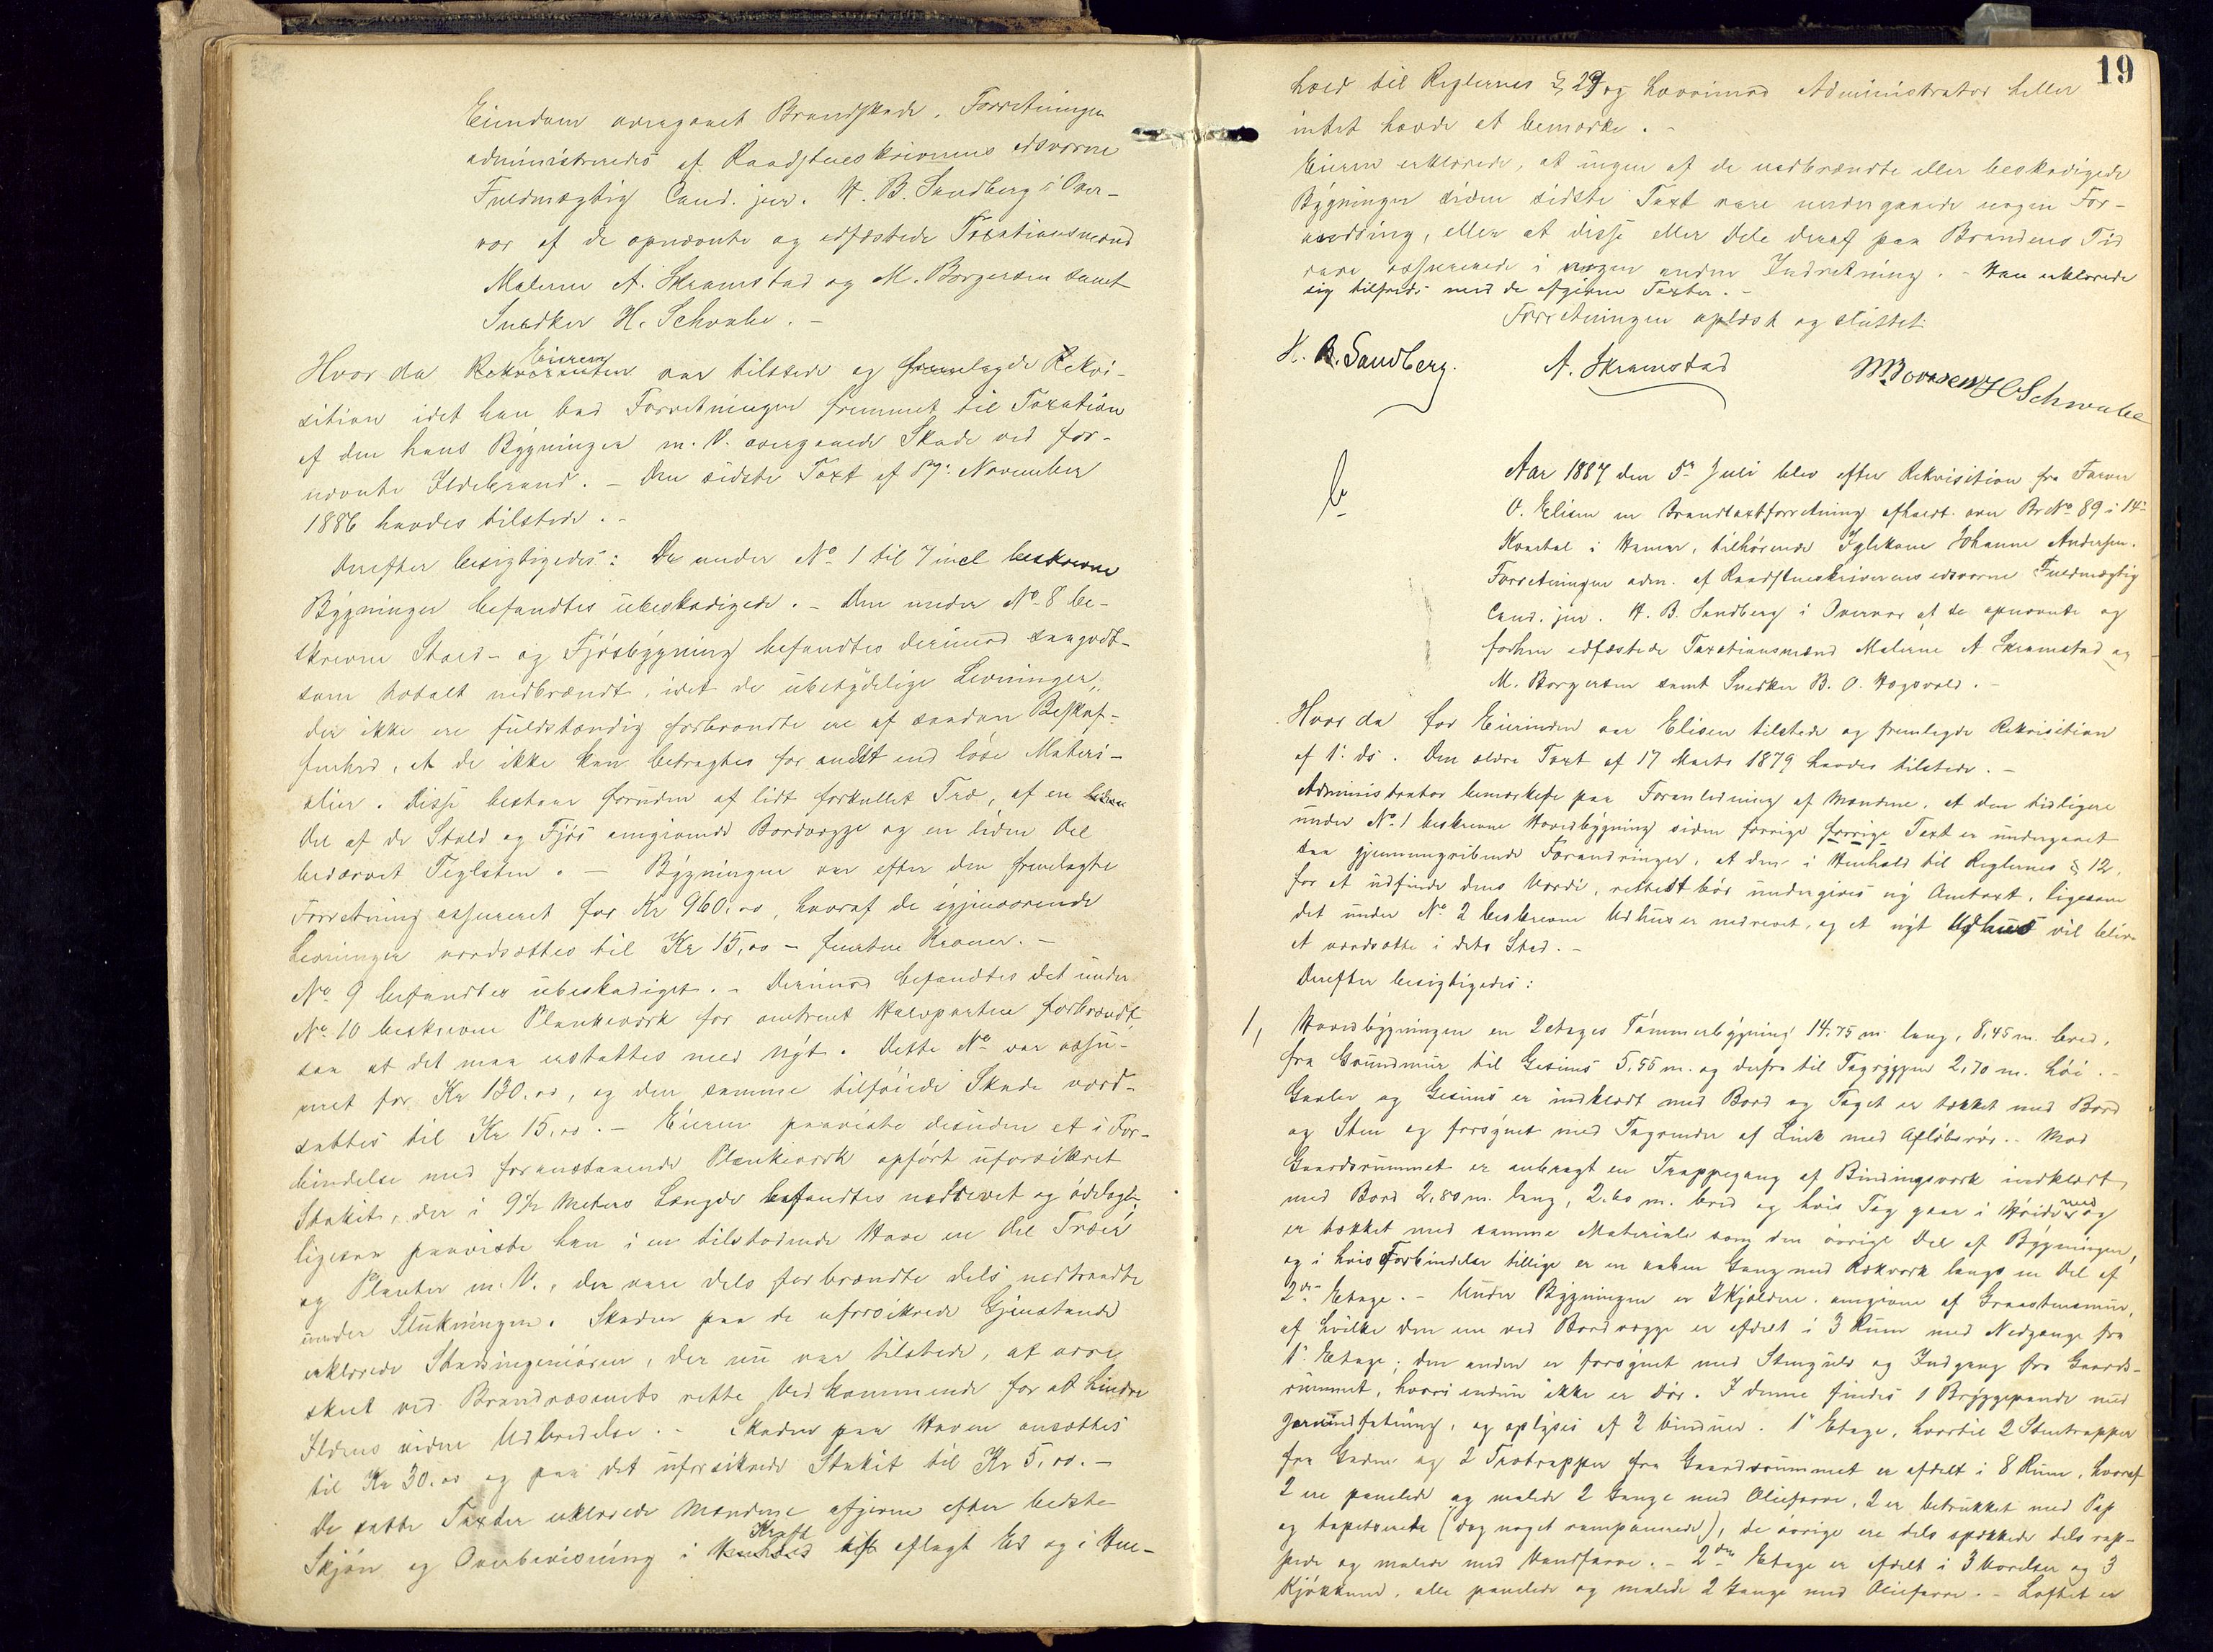 Eiendom overgaaet Brandskade. Forretningen
administreredes af Raadstueskriverens edsvorne
Fuldmægtig Cand. jur. H. B. Sandberg i Over-
vær af de opnævnte og edfæstede Taxationsmænd
Malerne A. Skramstad og M. Borgersen samt
Snedker H. Schwabe. –
Hvor da Eieren var tilstede og fremlagde Rekvi-
sition idet han bad Forretningen fremmet til Taxation
af den hans Bygninger m. V. overgaaede Skade ved for-
nævnte Ildebrand. – Den sidste Taxt af November
1886 havdes tilstede. –
Derefter besigtigedes: De under No 1 til 7 incl beskrevne
Bygninger befandtes ubeskadigede. – Den under No 8 be-
skrevne Stald- og Fjøsbygning befandtes derimod saagodt-
som totalt nedbrændt, idet de ubetydelige Levninger,
der ikke ere fuldstændig forbrændte ere af saadan Beskaf-
fenhed, at de ikke kan betragtes for andet end løse Materi-
alier. Disse bestaar foruden af lidt forkullet Træ, af en liden
Del af de Stald og Fjøs omgivende Bordvægge og en liden Del
bedærvet Teglsten. – Bygningen var efter den fremlagte
Forretning assureret for Kr 960.00, hvoraf de igjenværende
Levninger værdsættes til Kr 15,00 – femten Kroner. –
No 9 befandtes ubeskadiget. – Derimod befandtes det under
No 10 beskrevne Plankeværk for omtrent Halvparten forbrændt,
saa at det maa erstattes med Nyt. Dette No var assu-
reret for Kr 130.00, og den samme tilføiede Skade værd-
sattes til Kr 15,00. – Eieren paaviste desuden et i For-
bindelse med foranstaaende Plankeværk opført uforsikret
Stakit, der i 9½ Meters Længde befandtes nedrevet og ødelagt,
ligesaa paaviste han i en tilstødende Have en Del Træer
og Planter m. V., der vare dels forbrændte dels nedtraadte
under Slukningen. Skaden paa de uforsikrede Gjenstande
erklærede Stadsingeniøren, der nu var tilstede, at være
skeet ved Brandvæsenets rette Vedkommende for at hindre
Ildens videre Udbredelse. – Skaden paa Haven ansættes
til Kr 30.00 og paa det uforsikrede Stakit til Kr 5,00. –
De satte Taxter erklærede Mændene afgivne efter bedste
Skjøn og Overbevisning i Kraft aflagt Ed og i Hen-
19
hold til Reglernes § 29 og hvorimod Administrator heller
intet havde at bemærke. –
Eieren erklærede, at ingen af de nedbrændte eller beskadigede
Bygninger siden sidste Taxt vare undergaaede nogen For-
andring, eller at disse eller Dele deraf paa Brandens Tid
vare assurerede i nogen anden Indretning. – Han erklærede
sig tilfreds med de afgivne Taxter. –
Forretningen oplæst og sluttet
H. B. Sandberg. A. Skramstad M Borgersen H Schwabe
Aar 1887 den 5te Juli blev efter Rekvisition fra Farver
O. Elisen en Brandtaxtforretning afholdt over Br No 89 i 14de
Kvartal i Hamar, tilhørende Johanne Andersen.
Forretningen adm. af Raadstueskriverens edsvorne Fuldmægtig
Cand. jur. H. B. Sandberg i Overvær af de opnævnte og
forhen edfæstede Taxationsmænd Malerne A Skramstad og
M. Borgersen samt Snedker B. O. Hogsvold. –
Hvor da for Eierinden var Elisen tilstede og fremlagde Rekvisition
af 1. ds. Den ældre Taxt af 17 Marts 1879 havdes tilstede. –
Administrator bemærkede paa Foranledning af Mændene, at den tidligere
under No 1 beskrevne Hovedbygning siden forrige forrige Taxt er undergaaet
saa gjennemgribende Forandringer, at den i Henhold til Reglernes § 12,
for at udfinde dens Værdi, rettest bør undergives ny Omtaxt, ligesom
det under No 2 beskrevne Udhus er nedrevet, og et nyt Udhus vil blive
at værdsætte i dets Sted. –
Derefter besigtigedes:
1, Hovedbygningen en 2 etages Tømmerbygning 14.75 m. lang, 8,45 m. bred,
fra Grundmur til Gesims 5,55 m. og derfra til Tagryggen 2,70 m. høi. –
Gavler og Gesims er indklædt med Bord og Taget er tækket med Bord
og Sten og forsynet med Tagrender af Zink med Afløbsrør. – Mod
Gaardsrummet er anbragt en Trappegang af Bindingsværk indklædt
med Bord 2,80 m. lang, 2.60 m. bred og hvis Tag gaar i Høide med og
er tækket med samme Materiale som den øvrige Del af Bygningen,
og i hvis Forbindelse tillige er en aaben Gang med Rækværk langs en Del af
2den Etage. – Under Bygningen er 2 Kjældere omgivne af Graastensmur,
af hvilke den ene ved Bordvægge er afdelt i 3 Rum med Nedgange fra
1ste Etage; den anden er forsynet med Stengulv og Indgang fra Gaards-
rummet, hvori endnu ikke er Dør. I denne findes 1 Bryggepande med
Jernindfatning, og oplyses af 2 Vinduer. 1ste Etage, hvortil 2 Stentrapper
fra Gaden og 2 Trætrapper fra Gaardsrummet er afdelt i 8 Rum, hvoraf
2 ere panelede og malede 2 Gange med Oliefarve, 2 er betrukket med Pap
og tapetserede (dog noget ramponerede), de øvrige ere dels spækkede dels rap-
pede og malede med Vandfarve. – 2den Etage er afdelt i 3 Værelser og 3
Kjøkkener, alle panelede og malede 2 Gange med Oliefarve. – Loftet er